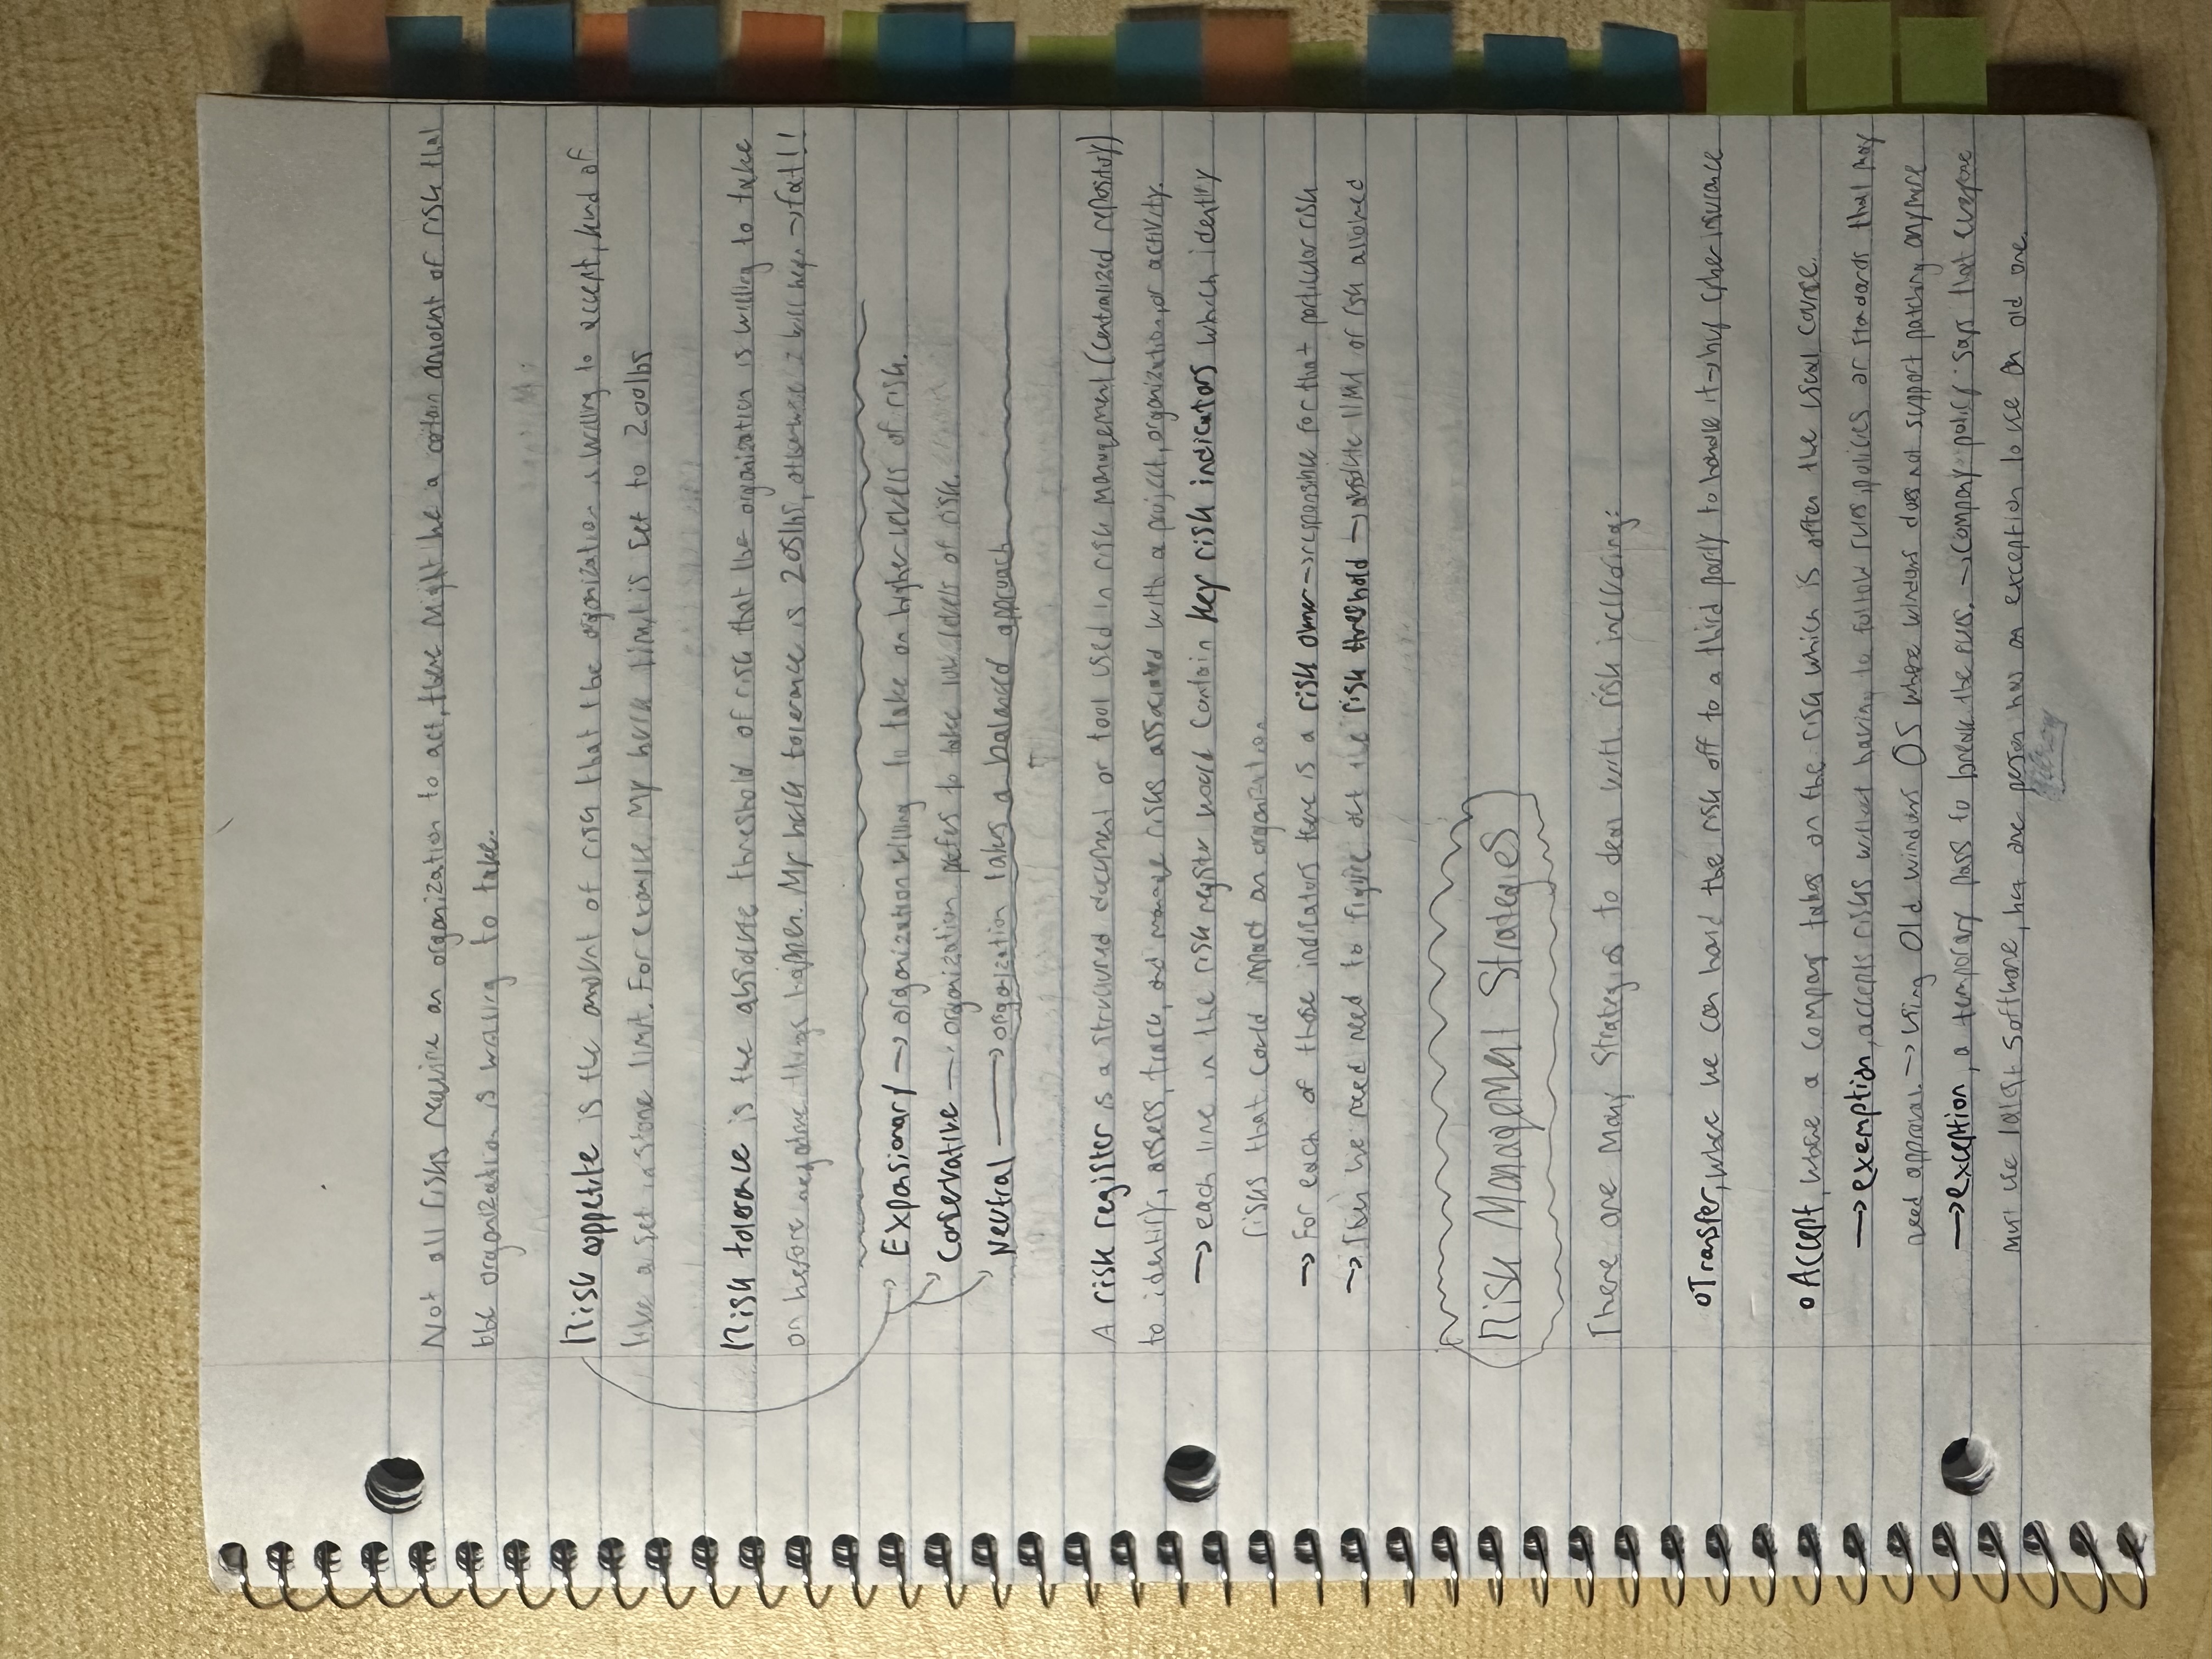 Not all risks require an organization to act, there might be a certain amount of risk that
the organization is willing to take.
Risk appetite is the amount of risk that the organization is willing to accept, kind of
like a set in stone limit. For example, My bulk limit is set to 200lbs
Risk tolerance is the absolute threshold of risk that the organization is willing to take
on before negative things happen. My bulk tolerance is 205lbs, otherwise I will be → fat!!
Expansionary → organization willing to take on higher levels of risk.
Conservative → organization prefers to take low levels of risk.
Neutral → organization takes a balanced approach
A risk register is a structured document or tool used in risk management (centralized repository)
to identify, assess, track, and manage risks associated with a project, organization, or activity.
→ each line in the risk register would contain key risk indicators which identify
risks that could impact an organization
→ For each of those indicators there is a risk owner → responsible for that particular risk
→ Then we need need to figure out the risk threshold → absolute limit of risk allowed
Risk Management Strategies
There are many strategies to deal with risk including:
o Transfer, where we can hand the risk off to a third party to handle it → buy cyber insurance
o Accept, where a company takes on the risk which is often the usual course.
→ exemption, accepts risks without having to follow rules, policies or standards that may
need approval. → Using Old windows OS where windows does not support patching anymore
→ exception, a temporary pass to break the rules. → Company policy says that everyone
must use latest software, but one person has an exception to use an old one.